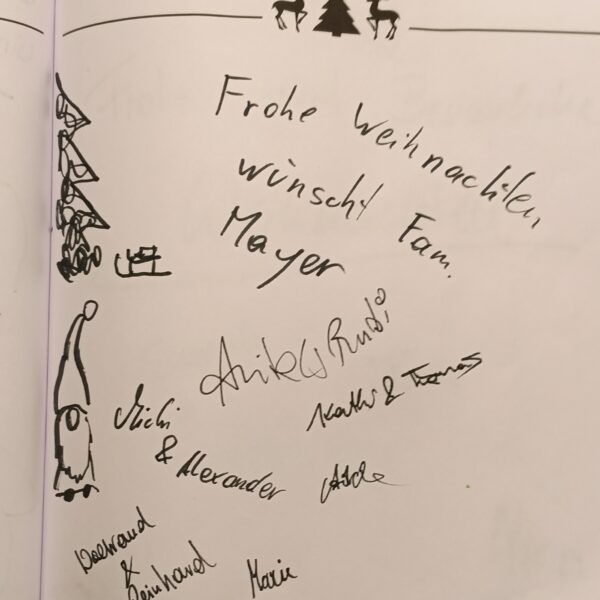 Frohe Weihnachten
wünscht Fam.
Mayer
Rudi
Kathi & Thomas
Michi
& Alexander
&
Reinhard
Marie